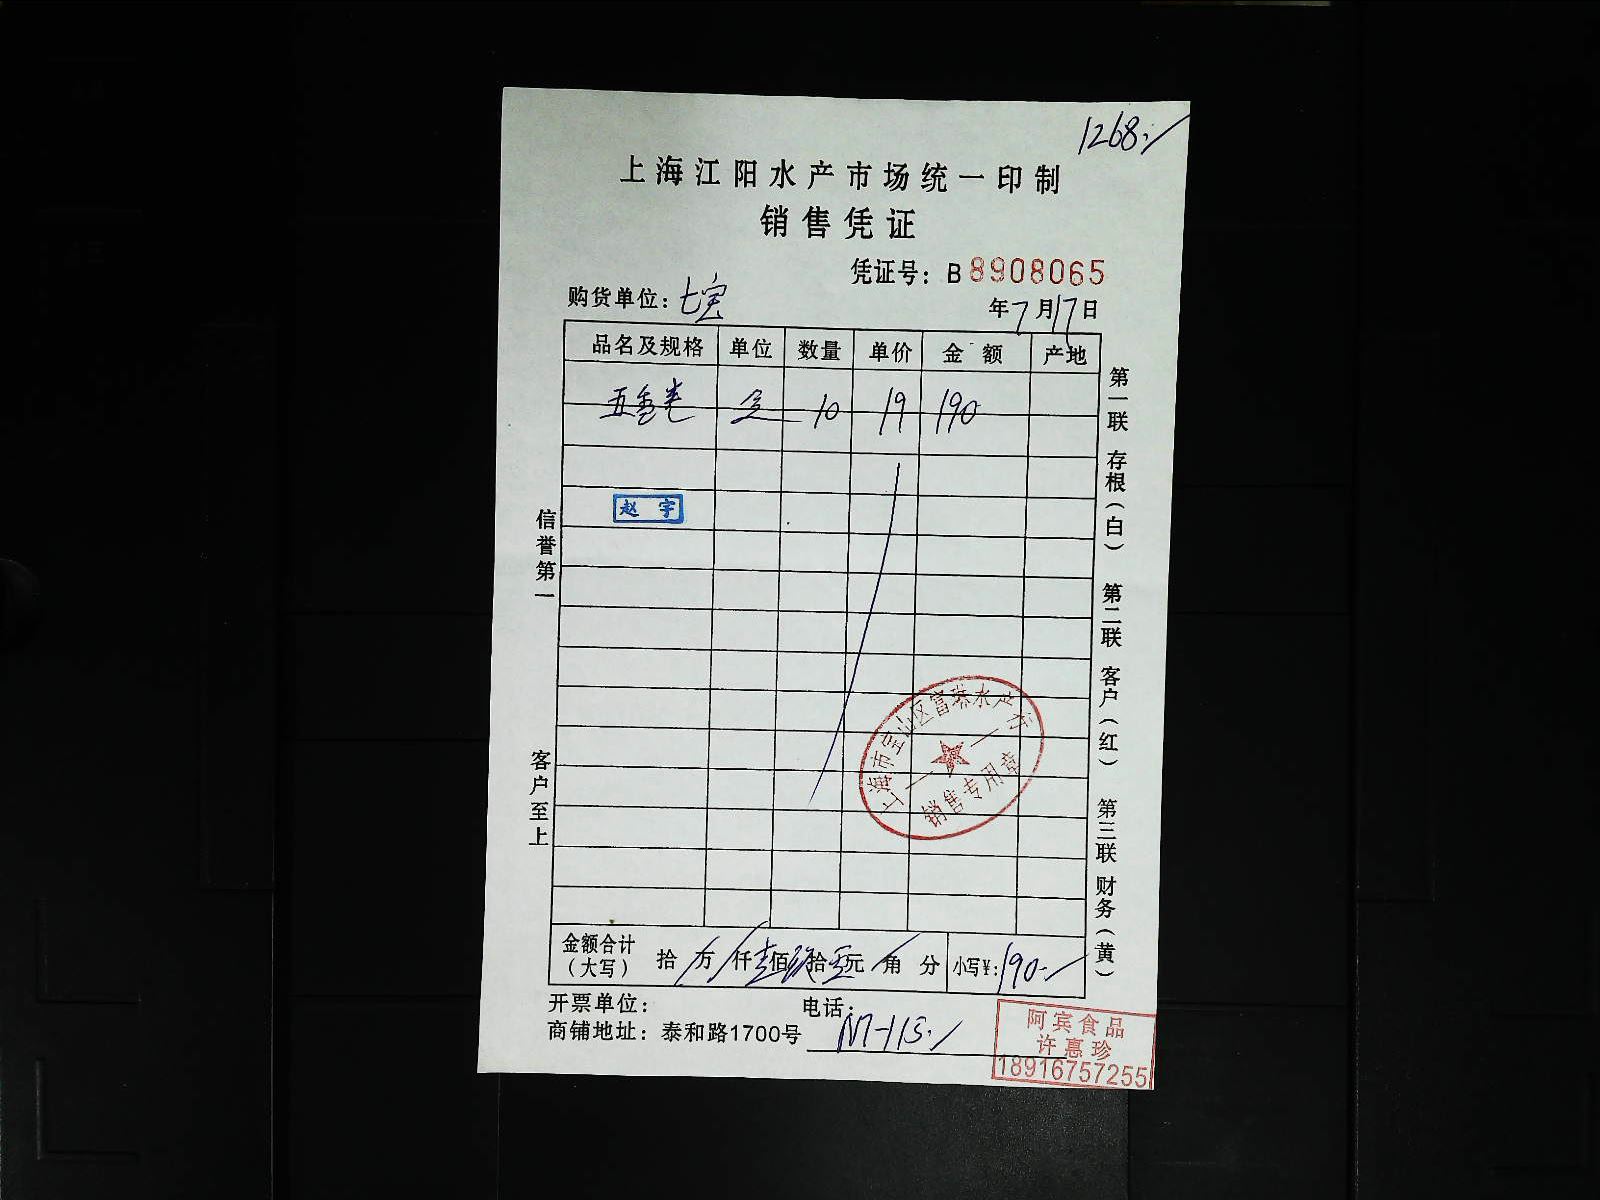 1268.
上海江阳水产市场统一印制
销售凭证
凭证号：B8908065
购货单位：七宝
年7月17日
品名及规格 单位 数量 单价 金额 产地
五香 10 19 190
赵宇
信誉第一
客户至上
第一联 存根（白） 第二联 客户（红） 第三联 财务（黄）
上海市宝山区富琳水产行
销售专用章
金额合计（大写） 拾 万 仟壹佰玖拾元 角 分 小写¥：190.-
开票单位： 电话：
商铺地址：泰和路1700号
阿宾食品
许惠珍
18916757255